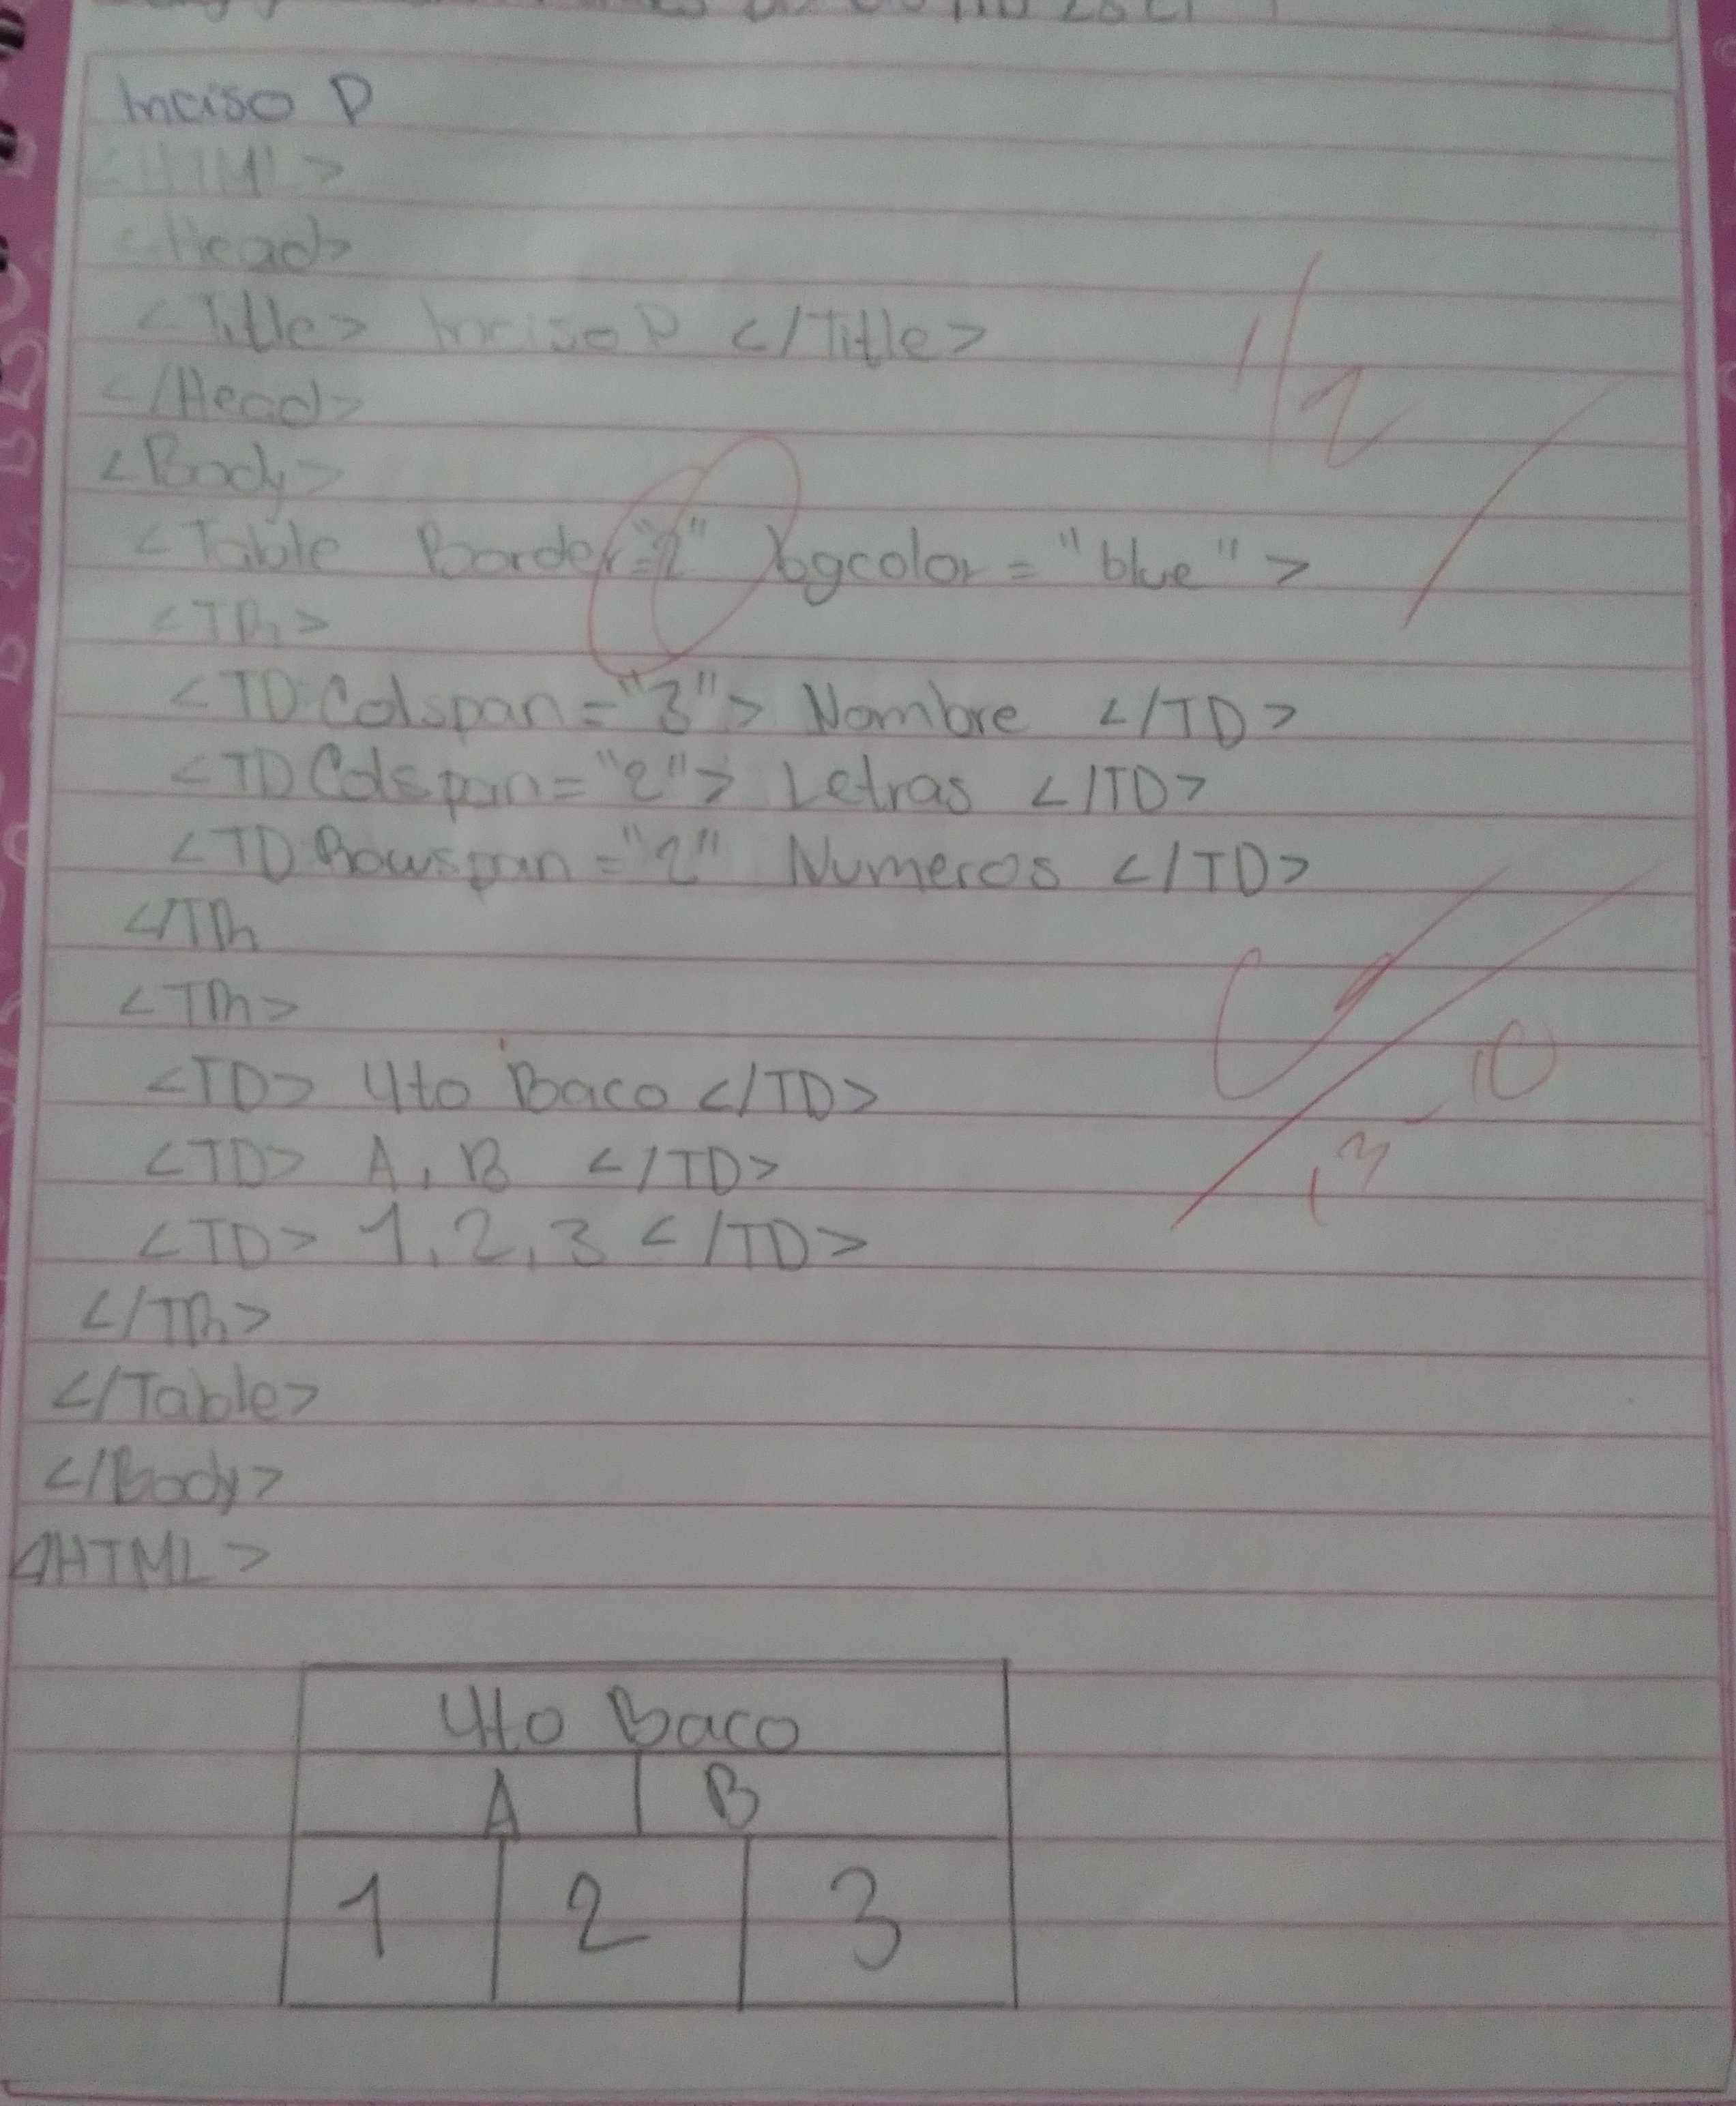 Inciso P
<HTML>
<Head>
<Title> Inciso P </Title>
</Head>
<Body>
<Table Border="2" bgcolor="blue">
<TR>
<TD Colspan="3"> Nombre </TD>
<TD Colspan="2"> Letras </TD>
<TD Rowspan="2" Numeros </TD>
</TR
<TR>
<TD> 4to Baco </TD>
<TD> A, B </TD>
<TD> 1, 2, 3 </TD>
</TR>
</Table>
</Body>
</HTML>
4to Baco
A B
1 2 3